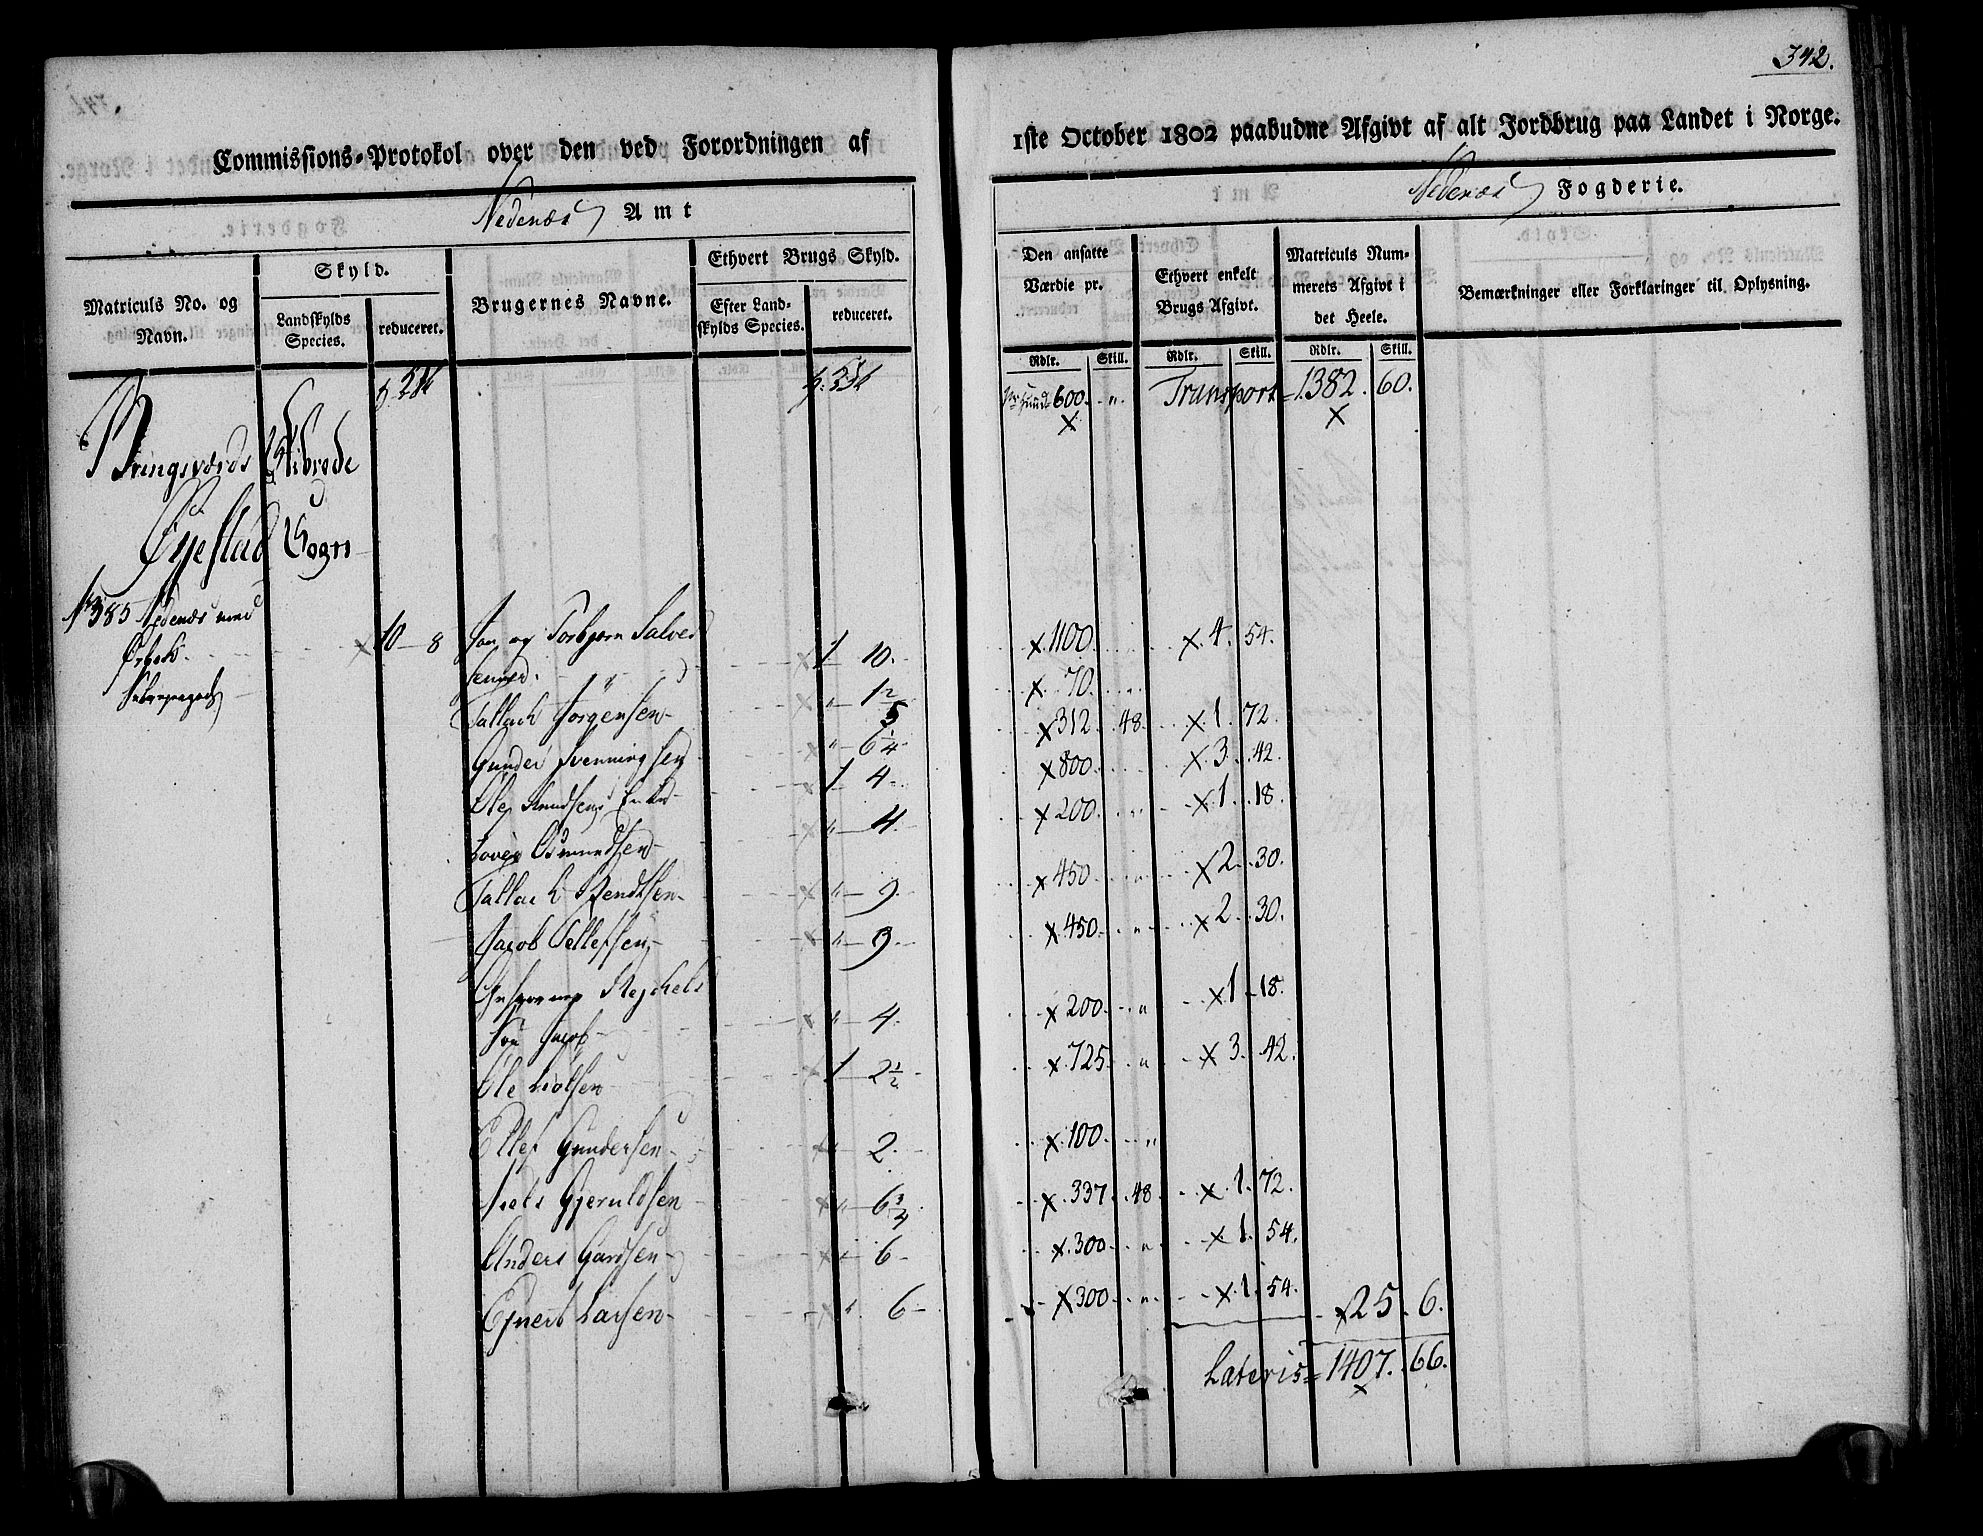 342.
Commissions-Protokol over den ved Forordningen af
1ste October 1802 paabudne Afgivt af alt Jordbrug paa Landet i Norge.
Nedenæs Amt
Nedenæs Fogderie.
Matriculs No. og Navn.
Skyld.
Landskylds Species.
reduceret.
Brugernes Navne.
Ethvert Brugs Skyld.
Efter Landskylds Species.
reduceret.
Den ansatte Værdie pr.
Ethvert enkelt Brugs Afgivt.
Matriculs Nummerets Afgivt i det Heele.
Bemærkninger eller Forklaringer til Oplysning.
Rdlr. Skill. Rdlr. Skill. Rdlr. Skill.
600. Transport 1382. 60.
Skibrede
Øyestad Sogn
385 Nedenæs med
10 8 og Torbjørn Salves 1 10. 1100. 4. 54.
1 1/2 70.
Tallach Jørgensen 312. 48. 1. 72.
Gunder Svenningsen 6 1/4 800. 3. 42.
Ole Knudsens Enke 1 4. 200. 1. 18.
Osmundsen 4.
Tallach Bendtsen 9. 450. 2. 30.
Jacob Tellefsen 9. 450. 2. 30.
Jacob 4. 200. 1. 18.
Ole Holsen 1 2 1/2 725. 3. 42.
Ellef Gundersen 2. 100.
Niels Gjeruldsen 6 3/4 337. 48. 1. 72.
Anders Gardsen 6 300. 1. 54.
Ejvert Larsen 6 300. 1. 54.
25. 6.
Lateris 1407. 66.